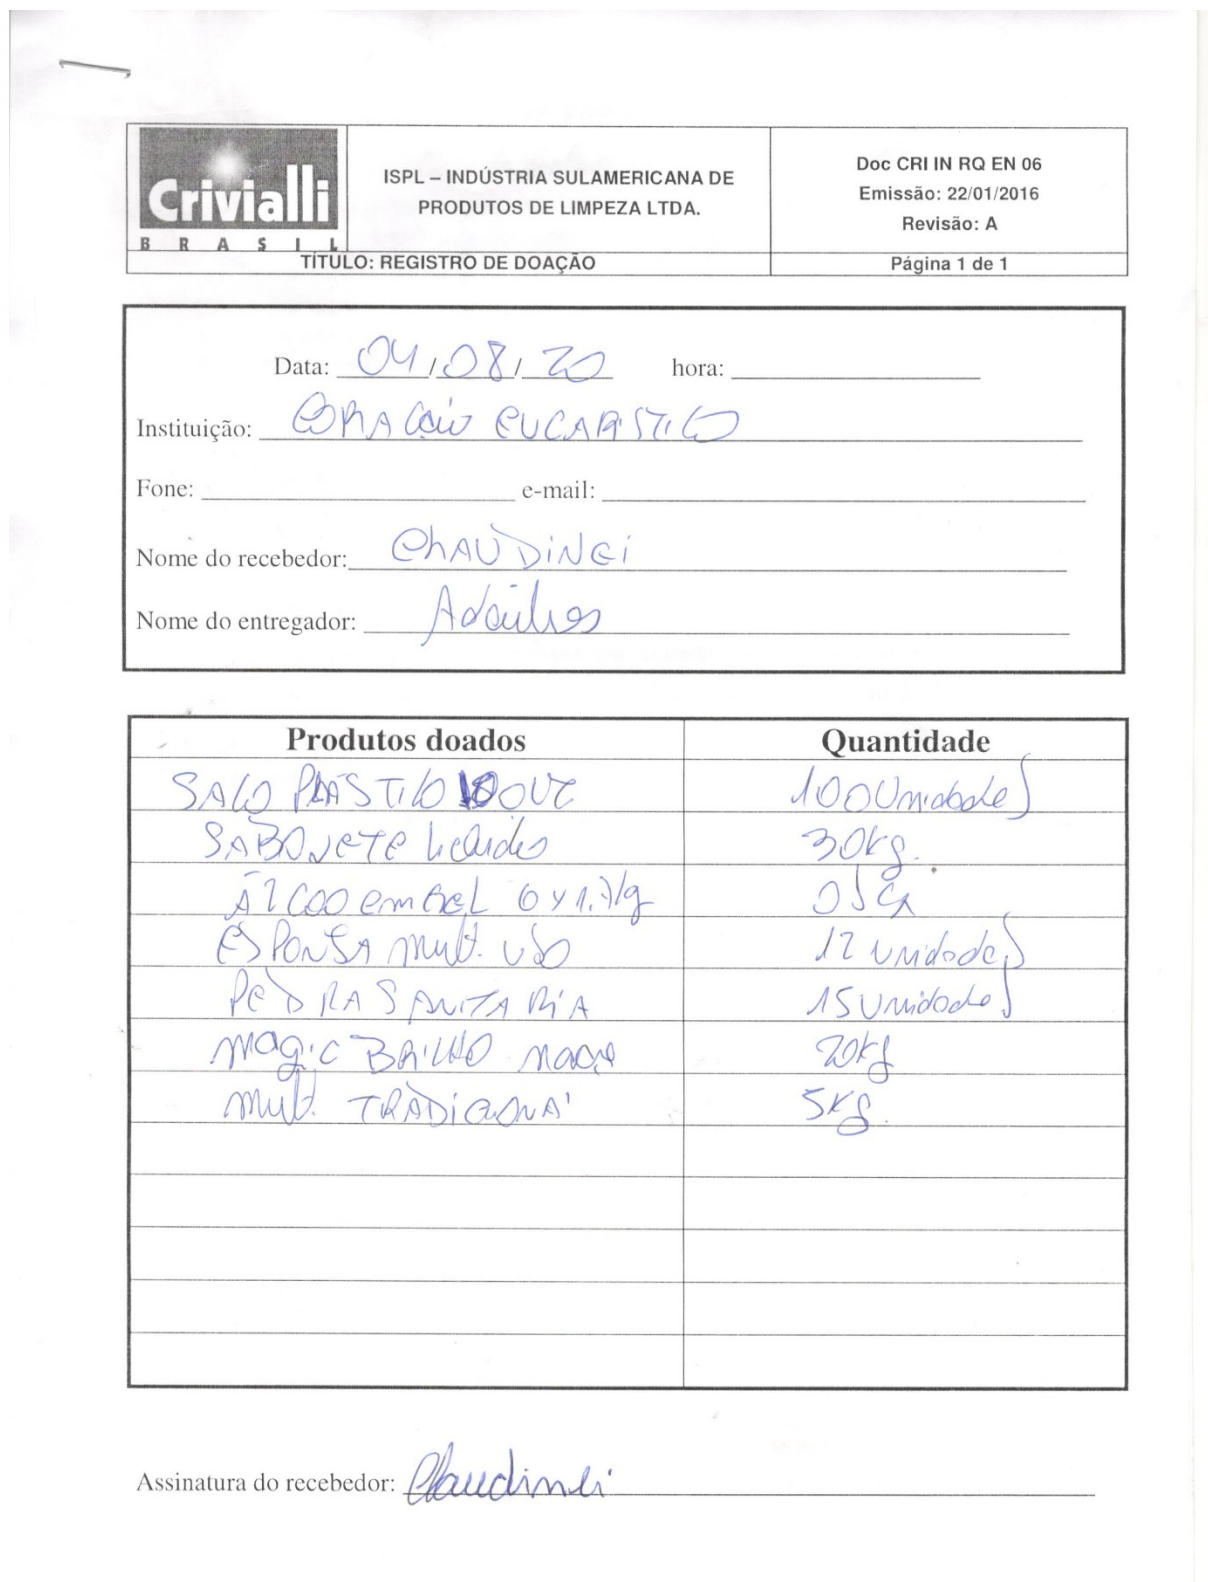 Crivialli
BRASIL
ISPL – INDÚSTRIA SULAMERICANA DE
PRODUTOS DE LIMPEZA LTDA.
Doc CRI IN RQ EN 06
Emissão: 22/01/2016
Revisão: A
TÍTULO: REGISTRO DE DOAÇÃO
Página 1 de 1
Data: 04/08/20 hora:
Instituição: CORAÇÃO EUCARISTICO
Fone: e-mail:
Nome do recebedor: ChAUDiNEi
Nome do entregador:
Produtos doados Quantidade
SACO PLASTICO 100 Unidades
SABONETE 30kg.
EM GEL
ESPONJA mult. USO 12 unidades
PEDRA SANITARIA 15 Unidades
MAGIC BRILHO 20kg
mult. 5Kg.
Assinatura do recebedor: Claudinei